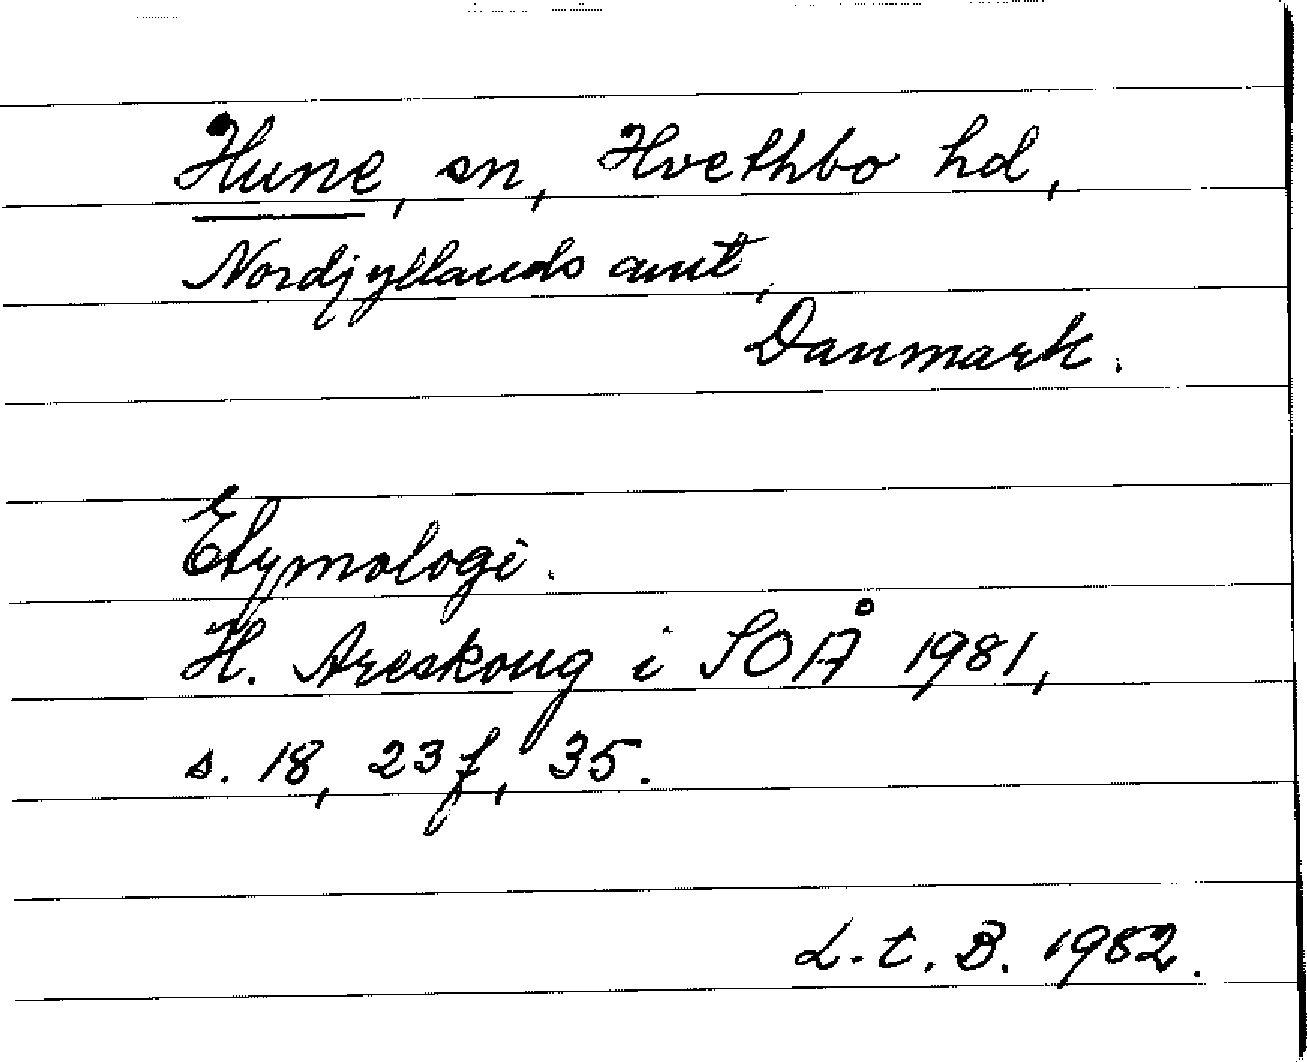 Hune, sn, Hvethbo hd,
Nordjyllands amt,
Danmark.
Etymologi.
H. Areskoug i SOÅ 1981,
s. 18, 23 f, 35.
L.t.B. 1982.